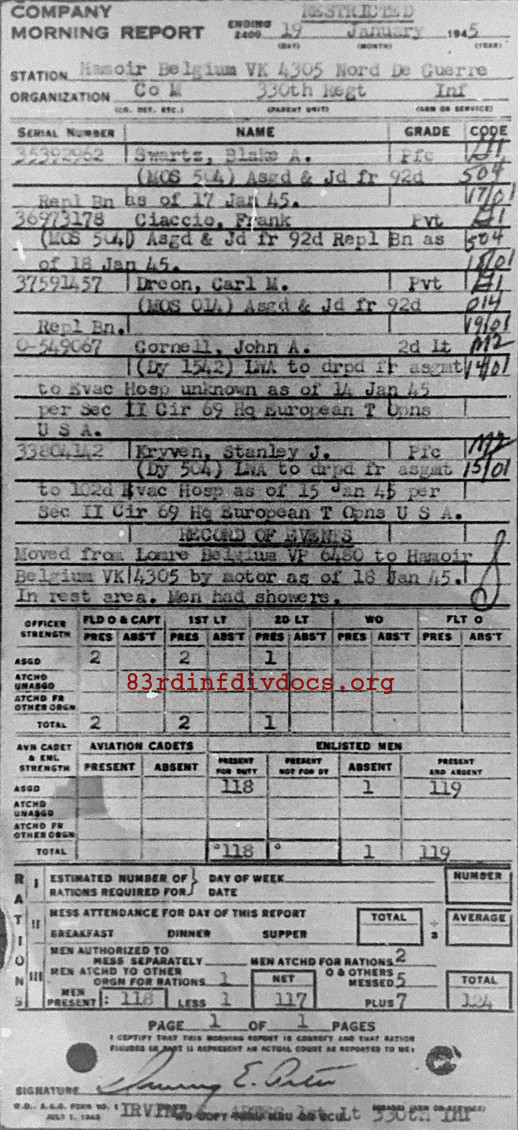 COMPANY
MORNING REPORT
RESTRICTED
ENDING 2400 19 January 1945
(DAY) (MONTH) (YEAR)
STATION Hamoir Belgium VK 4305 Nord De Guerre
ORGANIZATION Co M 330th Regt Inf
(CO. DET, ETC.) (PARENT UNIT) (ARM OR SERVICE)
SERIAL NUMBER NAME GRADE CODE
35392962 Swartz, Blake A. Pfc #1
(MOS 504) Asgd & Jd fr 92d 504
Repl Bn as of 17 Jan 45. 17/01
36973178 Ciaccio, Frank Pvt #1
(MOS 504) Asgd & Jd fr 92d Repl Bn as 504
of 18 Jan 45. 18/01
37591457 Dreon, Carl M. Pvt #1
(MOS 014) Asgd & Jd fr 92d 014
Repl Bn. 19/01
O-549067 Cornell, John A. 2d Lt M2
(Dy 1542) LWA to drpd fr asgmt 14/01
to Evac Hosp unknown as of 14 Jan 45
per Sec II Cir 69 Hq European T Opns
U S A.
33804142 Kryven, Stanley J. Pfc M2
(Dy 504) LWA to drpd fr asgmt 15/01
to 102d Evac Hosp as of 15 Jan 45 per
Sec II Cir 69 Hq European T Opns U S A.
RECORD OF EVENTS
Moved from Lomre Belgium VP 6480 to Hamoir
Belgium VK 4305 by motor as of 18 Jan 45.
In rest area. Men had showers.
OFFICER STRENGTH FLD O & CAPT 1ST LT 2D LT WO FLT O
PRES ABS'T PRES ABS'T PRES ABS'T PRES ABS'T PRES ABS'T
ASGD 2 2 1
ATCHD UNASGD
83rdinfdivdocs.org
ATCHD FR OTHER ORGN
TOTAL 2 2 1
AVN CADET & ENL STRENGTH AVIATION CADETS ENLISTED MEN
PRESENT ABSENT PRESENT FOR DUTY PRESENT NOT FOR DY ABSENT PRESENT AND ABSENT
ASGD 118 1 119
ATCHD UNASGD
ATCHD FR OTHER ORGN
TOTAL 118 1 119
RATIONS
I ESTIMATED NUMBER OF RATIONS REQUIRED FOR } DAY OF WEEK DATE NUMBER
II MESS ATTENDANCE FOR DAY OF THIS REPORT TOTAL ÷ 3 AVERAGE
BREAKFAST DINNER SUPPER
III MEN AUTHORIZED TO MESS SEPARATELY MEN ATCHD FOR RATIONS 2
MEN ATCHD TO OTHER ORGN FOR RATIONS 1 NET O & OTHERS MESSED 5 TOTAL
MEN PRESENT: 118 LESS 1 117 PLUS 7 124
PAGE 1 OF 1 PAGES
I CERTIFY THAT THIS MORNING REPORT IS CORRECT AND THAT RATION
FIGURES IN PART III REPRESENT AN ACTUAL COUNT AS REPORTED TO ME:
SIGNATURE
W.D., A.G.O. FORM NO. 1
JULY 1, 1943
1st Lt 330th Inf